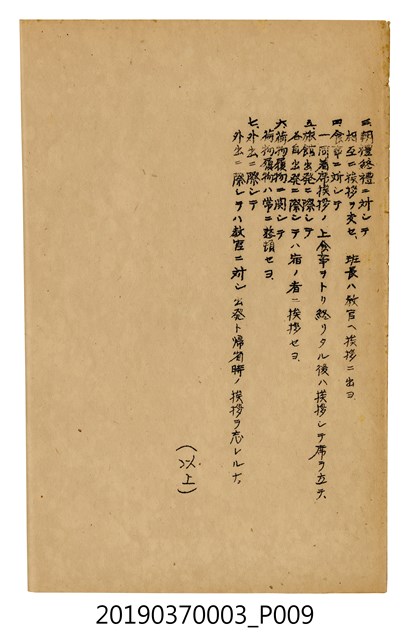 三、朝禮終禮ニ対シテ
相互ニ挨拶ヲ交セ、班長ハ教官ヘ挨拶ニ出ヨ
四、食事ニ対シテ
一同着席挨拶ノ上食事ヲトリ終リタル後ハ挨拶シテ席ヲ立テ、
五、旅館出発ニ際シテ
各自出発ニ際シテハ宿ノ者ニ挨拶セヨ
六、荷物獲物ニ関シテ
荷物獲物ハ常ニ整頓セヨ
七、外出ニ際シテ
外出ニ際シテハ教官ニ対シ出発ト帰着時ノ挨拶ヲ忘レルナ。
(以上)
20190370003_P009